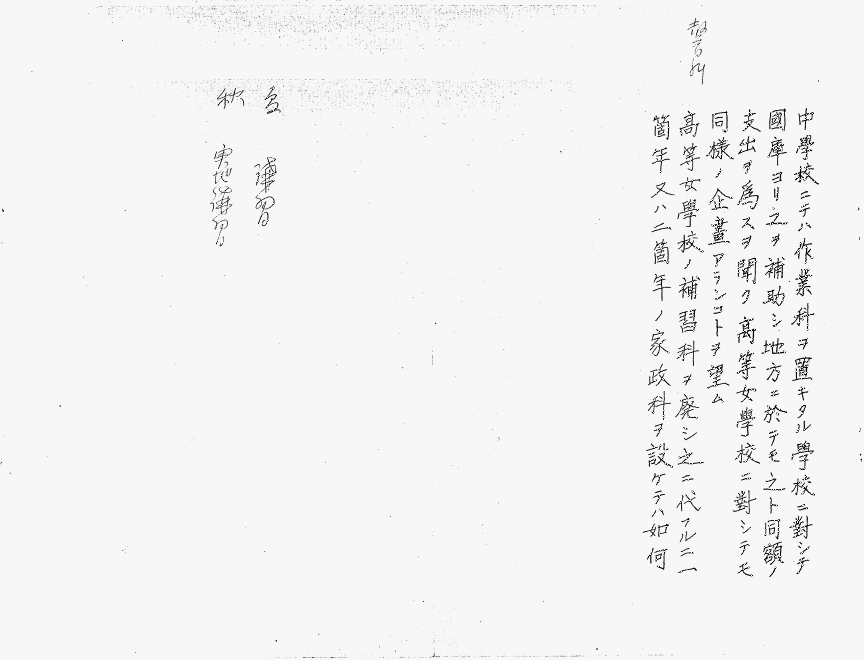 中學校ニテハ作業科ヲ置キタル學校ニ對シテ
國庫ヨリ之ヲ補助シ地方ニ於テモ之ト同額ノ
支出ヲ爲スヲ聞ク高等女學校ニ對シテモ
同樣ノ企畫アランコトヲ望ム
高等女學校ノ補習科ヲ廃シ之ニ代フルニ一
箇年又ハ二箇年ノ家政科ヲ設ケテハ如何
講習
秋 実地講習